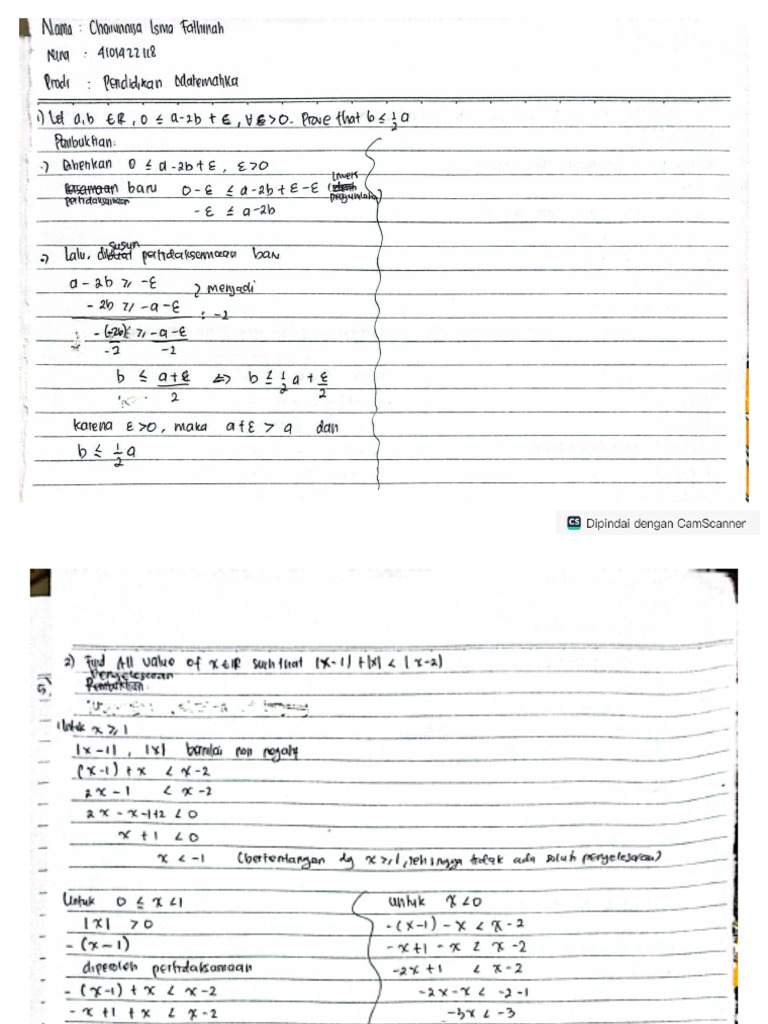 Nama : Choirunnisa Isma Fathinah
NIM : 4101422118
Prodi : Pendidikan Matematika
1) Let a,b ∈ R, 0 ≤ a-2b + ε, ∀ε>0. Prove that b ≤ 1/2 a
Pembuktian:
•) Diberikan 0 ≤ a-2b+ε, ε>0
pertidaksamaan baru 0-ε ≤ a-2b+ε-ε (invers penjumlahan)
-ε ≤ a-2b
•) Lalu, disusun pertidaksamaan baru
a - 2b ≥ -ε
- 2b ≥ -a-ε } menjadi
: -2
-(-2b)≤ ≥ -a-ε
-2 -2
b ≤ a+ε/2 ⇔ b ≤ 1/2 a + ε/2
karena ε>0, maka a+ε > a dan
b ≤ 1/2 a
CS Dipindai dengan CamScanner
2) Find All value of x∈R such that |x-1|+|x| < |x-2|
Penyelesaian
Untuk x ≥ 1
|x-1|, |x| bernilai non negatif
(x-1) + x < x-2
2x-1 < x-2
2x - x-1+2 < 0
x + 1 < 0
x < -1 (bertentangan dg x ≥ 1, sehingga tidak ada solusi penyelesaian)
Untuk 0 ≤ x < 1
|x| > 0
- (x-1)
diperoleh pertidaksamaan
- (x-1) + x < x-2
- x +1 + x < x-2
untuk x<0
-(x-1) - x < x-2
-x+1 - x < x-2
-2x +1 < x-2
-2x-x < -2-1
-3x < -3